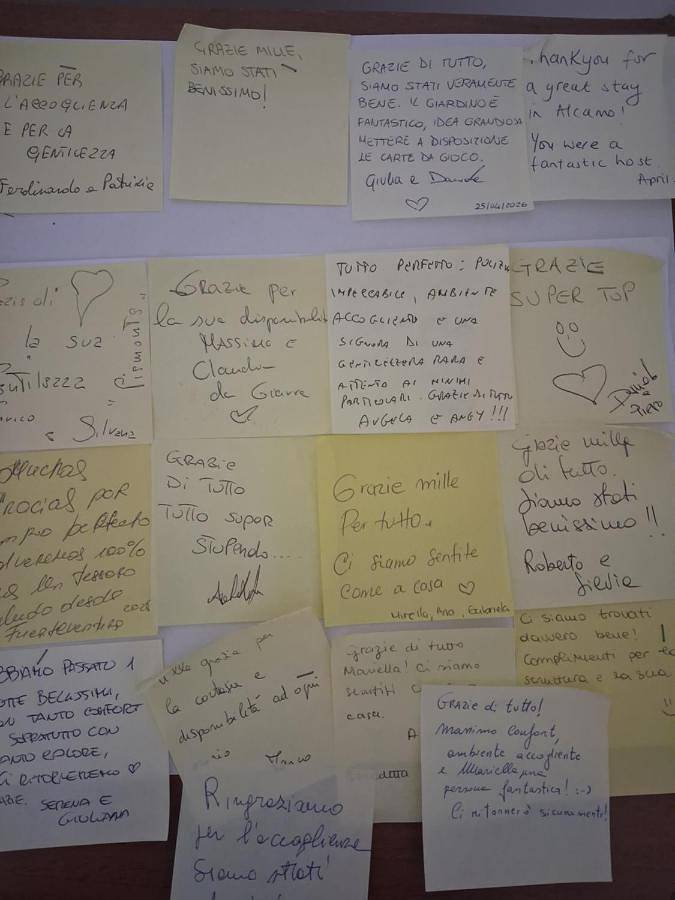 GRAZIE PER
L'ACCOGLIENZA
E PER LA
GENTILEZZA
Ferdinando e Patrizia
GRAZIE MILLE,
SIAMO STATI
BENISSIMO!
GRAZIE DI TUTTO,
SIAMO STATI VERAMENTE
BENE. IL GIARDINO È
FANTASTICO, IDEA GRANDIOSA
METTERE A DISPOSIZIONE
LE CARTE DA GIOCO.
Giulia e Davide
25/04/2026
Thank you for
a great stay
in Alcamo!
You were a
fantastic host.
April.
la sua
Silvana
Grazie per
la sua disponibilità
Massimo e
Claudia
da Giarre
TUTTO PERFETTO: PULIZIA
IMPECCABILE, AMBIENTE
ACCOGLIENTE E UNA
SIGNORA DI UNA
GENTILEZZA RARA E
ATTENTA AI MINIMI
PARTICOLARI. GRAZIE DI TUTTO
ANGELA E ANGY!!!
GRAZIE
SUPER TOP
Muchas
Gracias por
perfecto
volveremos 100%
desde
Fuerteventura
GRAZIE
DI TUTTO
TUTTO SUPER
STUPENDO....
Grazie mille
Per tutto.
Ci siamo sentite
come a casa
Mirella, Ana, Gabriela
Grazie mille
di tutto.
Siamo stati
benissimo!!
Roberto e
Silvia
ABBIAMO PASSATO 1
NOTTE BELLISSIMA,
CON TANTO COMFORT
SOPRATUTTO CON
TANTO CALORE,
CI RITORNEREMO
SERENA E
GIULIANA
grazie per
la cortesia e
disponibilità ad ogni
Ringraziamo
per l'accoglienza
Siamo stati
grazie di tutto
Mariella! Ci siamo
sentiti
casa.
Ci siamo trovati
davvero bene!
Complimenti per la
struttura e la sua
Grazie di tutto!
Massimo confort,
ambiente accogliente
e Mariella una
persona fantastica! :-)
Ci ritornerò sicuramente!